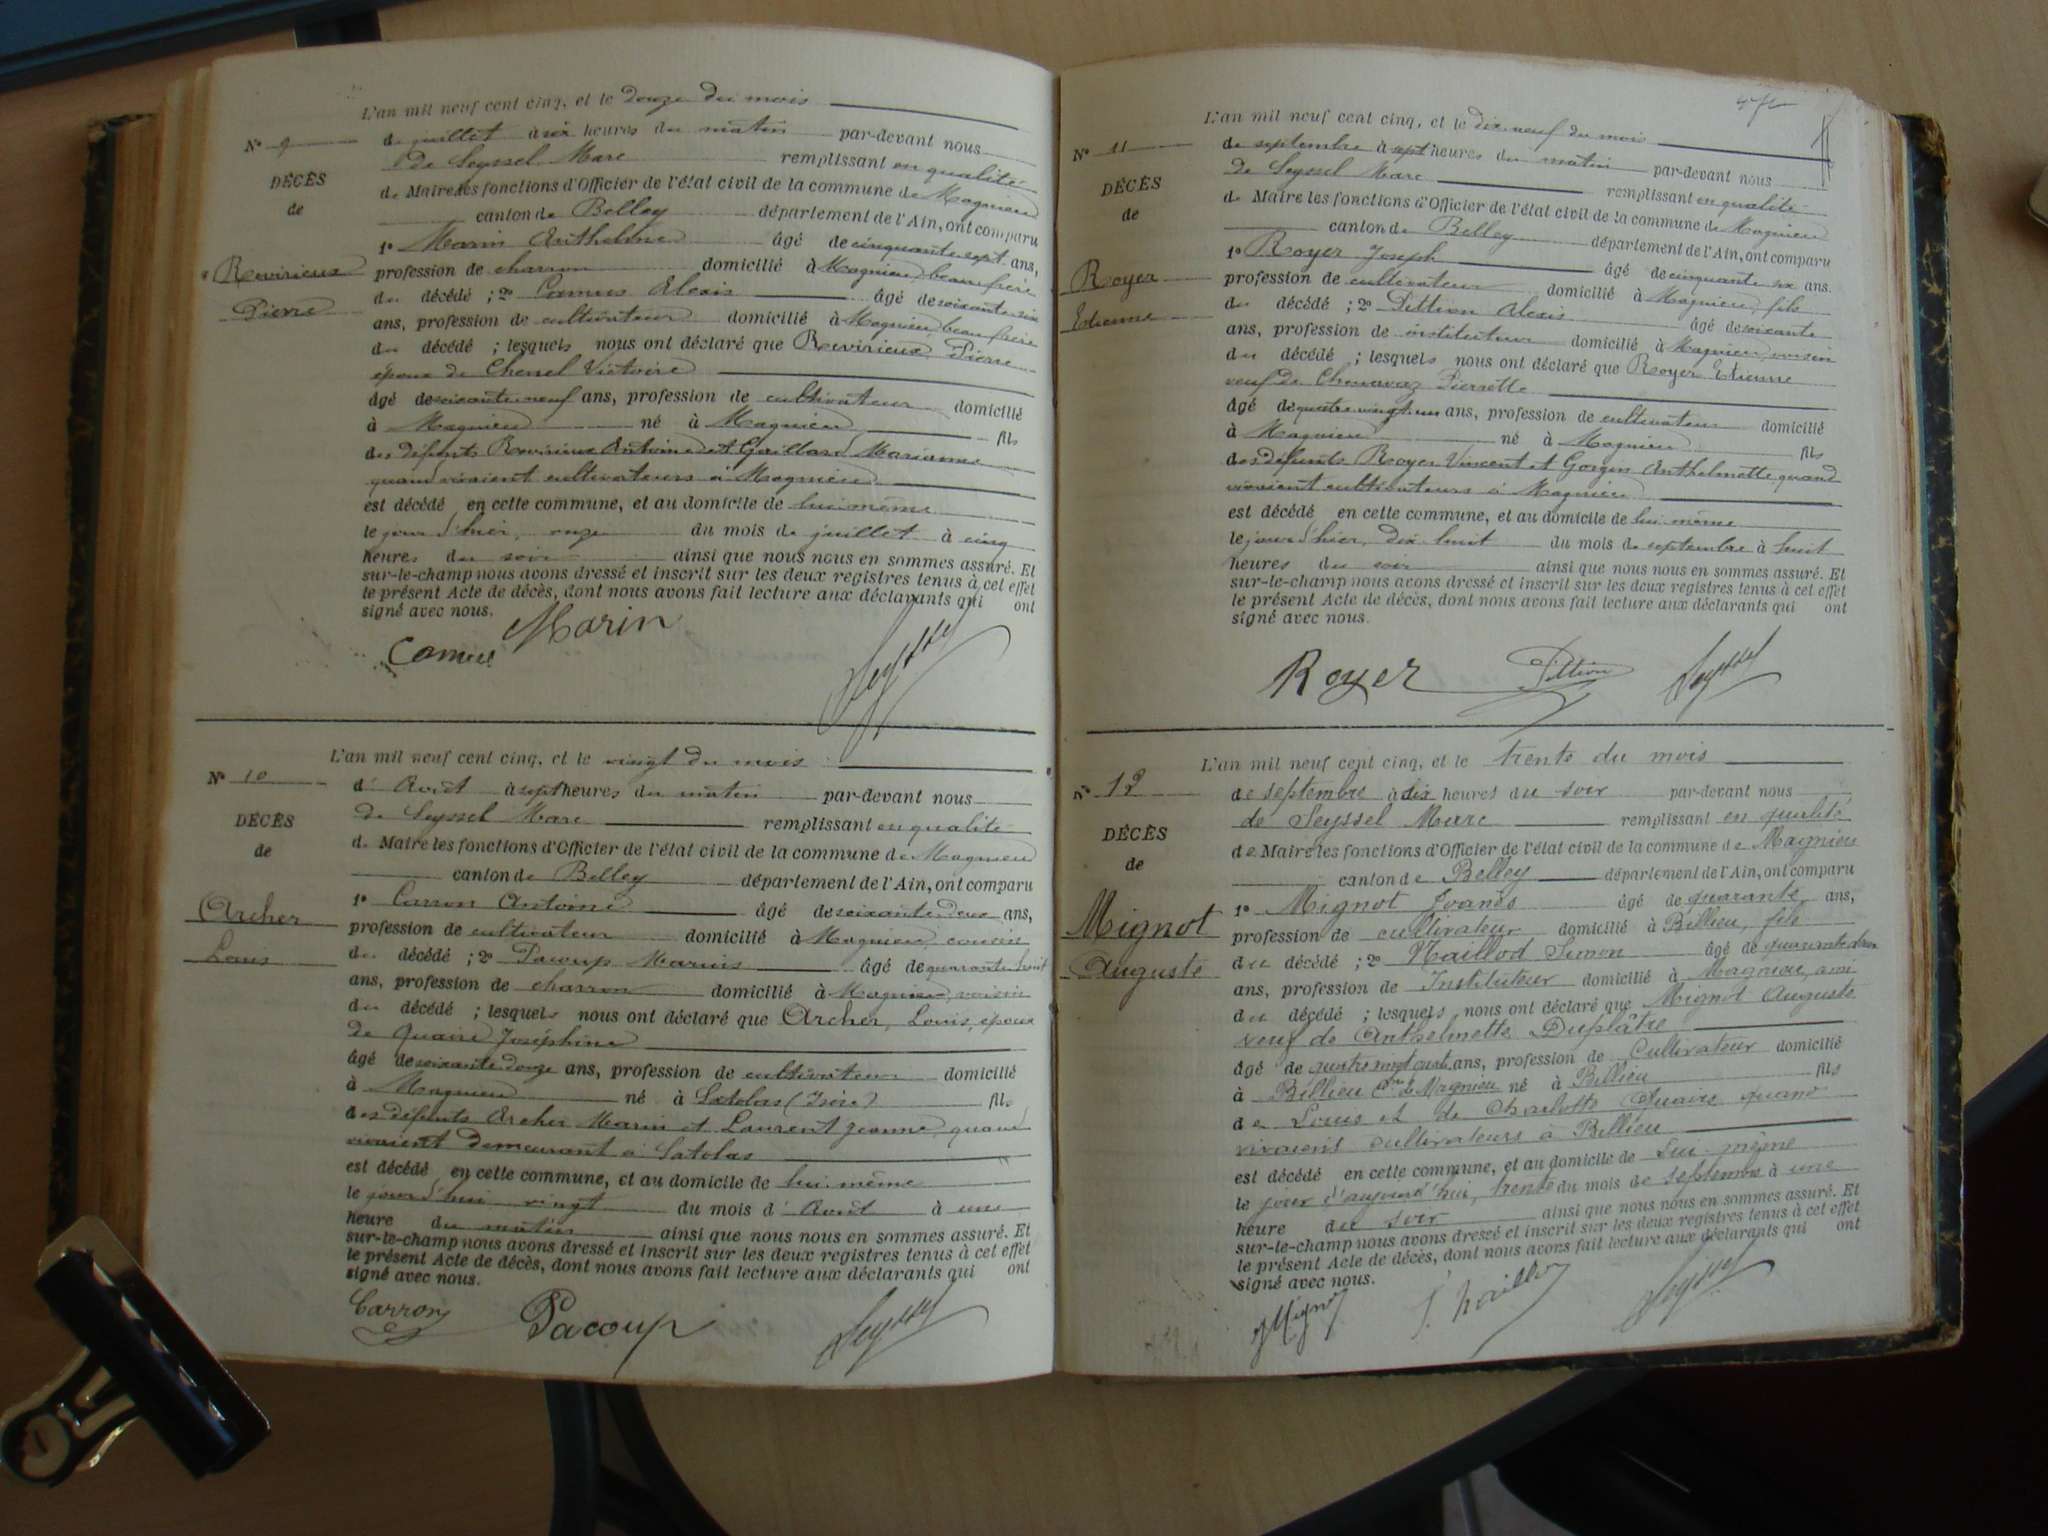 L'an mil neuf cent cinq, et le douze du mois
N° 9 de juillet à six heures du matin par-devant nous
de Seyssel Marc remplissant en qualité
DÉCÈS
de Maire les fonctions d'Officier de l'état civil de la commune de Magnieu
de
canton de Belley département de l'Ain, ont comparu
1° Marin Anthelme âgé de cinquante sept ans,
Revirieux
profession de charron domicilié à Magnieu, beau frère
Pierre
du décédé ; 2° Camus Alexis âgé de soixante six
ans, profession de cultivateur domicilié à Magnieu, beau frère
du décédé ; lesquels nous ont déclaré que Revirieux Pierre
époux de Chenel Victoire
âgé de soixante neuf ans, profession de cultivateur domicilié
à Magnieu né à Magnieu fils
des défunts Revirieux Antoine et Gaillard Marianne
quand vivaient cultivateurs à Magnieu
est décédé en cette commune, et au domicile de lui même
le jour d'hier, onze du mois de juillet à cinq
heures du soir ainsi que nous nous en sommes assuré. Et
sur-le-champ nous avons dressé et inscrit sur les deux registres tenus à cet effet
le présent Acte de décès, dont nous avons fait lecture aux déclarants qui ont
signé avec nous.
Camus Marin Seyssel
L'an mil neuf cent cinq, et le vingt du mois
N° 10 d'Août à sept heures du matin par-devant nous
de Seyssel Marc remplissant en qualité
DÉCÈS
de Maire les fonctions d'Officier de l'état civil de la commune de Magnieu
de
canton de Belley département de l'Ain, ont comparu
1° Carron Antoine âgé de soixante deux ans,
Archer
profession de cultivateur domicilié à Magnieu, cousin
Louis
du décédé ; 2° Pacoup Marius âgé de quarante huit
ans, profession de charron domicilié à Magnieu, voisin
du décédé ; lesquels nous ont déclaré que Archer, Louis, époux
de Quaire Joséphine
âgé de soixante douze ans, profession de cultivateur domicilié
à Magnieu né à Satolas (Isère) fils
des défunts Archer Marin et Laurent Jeanne, quand
vivaient demeurant à Satolas
est décédé en cette commune, et au domicile de lui même
le jour d'hui vingt du mois d'Août à une
heure du matin ainsi que nous nous en sommes assuré. Et
sur-le-champ nous avons dressé et inscrit sur les deux registres tenus à cet effet
le présent Acte de décès, dont nous avons fait lecture aux déclarants qui ont
signé avec nous.
Carron Pacoup Seyssel
L'an mil neuf cent cinq, et le dix-neuf du mois
N° 11 de septembre à sept heures du matin par-devant nous
de Seyssel Marc remplissant en qualité
DÉCÈS
de Maire les fonctions d'Officier de l'état civil de la commune de Magnieu
de
canton de Belley département de l'Ain, ont comparu
1° Royer Joseph âgé de cinquante six ans.
Royer
profession de cultivateur domicilié à Magnieu, fils
Etienne
du décédé ; 2° Pittion Alexis âgé de soixante
ans, profession de instituteur domicilié à Magnieu, voisin
du décédé ; lesquels nous ont déclaré que Royer Etienne
veuf de Chenavaz Pierrette
âgé de quatre vingt un ans, profession de cultivateur domicilié
à Magnieu né à Magnieu fils
des défunts Royer Vincent et Gorgen Anthelmette quand
vivaient cultivateurs à Magnieu
est décédé en cette commune, et au domicile de lui même
le jour d'hier, dix huit du mois de septembre à huit
heures du soir ainsi que nous nous en sommes assuré. Et
sur-le-champ nous avons dressé et inscrit sur les deux registres tenus à cet effet
le présent Acte de décès, dont nous avons fait lecture aux déclarants qui ont
signé avec nous.
Royer Pittion Seyssel
L'an mil neuf cent cinq, et le trente du mois
N° 12 de septembre à dix heures du soir par-devant nous
de Seyssel Marc remplissant en qualité
DÉCÈS
de Maire les fonctions d'Officier de l'état civil de la commune de Magnieu
de
canton de Belley département de l'Ain, ont comparu
1° Mignot Joanès âgé de quarante ans,
Mignot
profession de cultivateur domicilié à Billieu, fils
Auguste
du décédé ; 2° Naillod Simon âgé de quarante deux
ans, profession de Instituteur domicilié à Magnieu, ami
du décédé ; lesquels nous ont déclaré que Mignot Auguste
veuf de Anthelmette Duplâtre
âgé de ans, profession de Cultivateur domicilié
à Billieu Cne de Magnieu né à Billieu fils
de Louis et de Charlotte Quaire quand
vivaient cultivateurs à Billieu
est décédé en cette commune, et au domicile de lui-même
le jour d'aujourd'hui, trente du mois de septembre à une
heure du soir ainsi que nous nous en sommes assuré. Et
sur-le-champ nous avons dressé et inscrit sur les deux registres tenus à cet effet
le présent Acte de décès, dont nous avons fait lecture aux déclarants qui ont
signé avec nous.
JMignot S. Naillod Seyssel